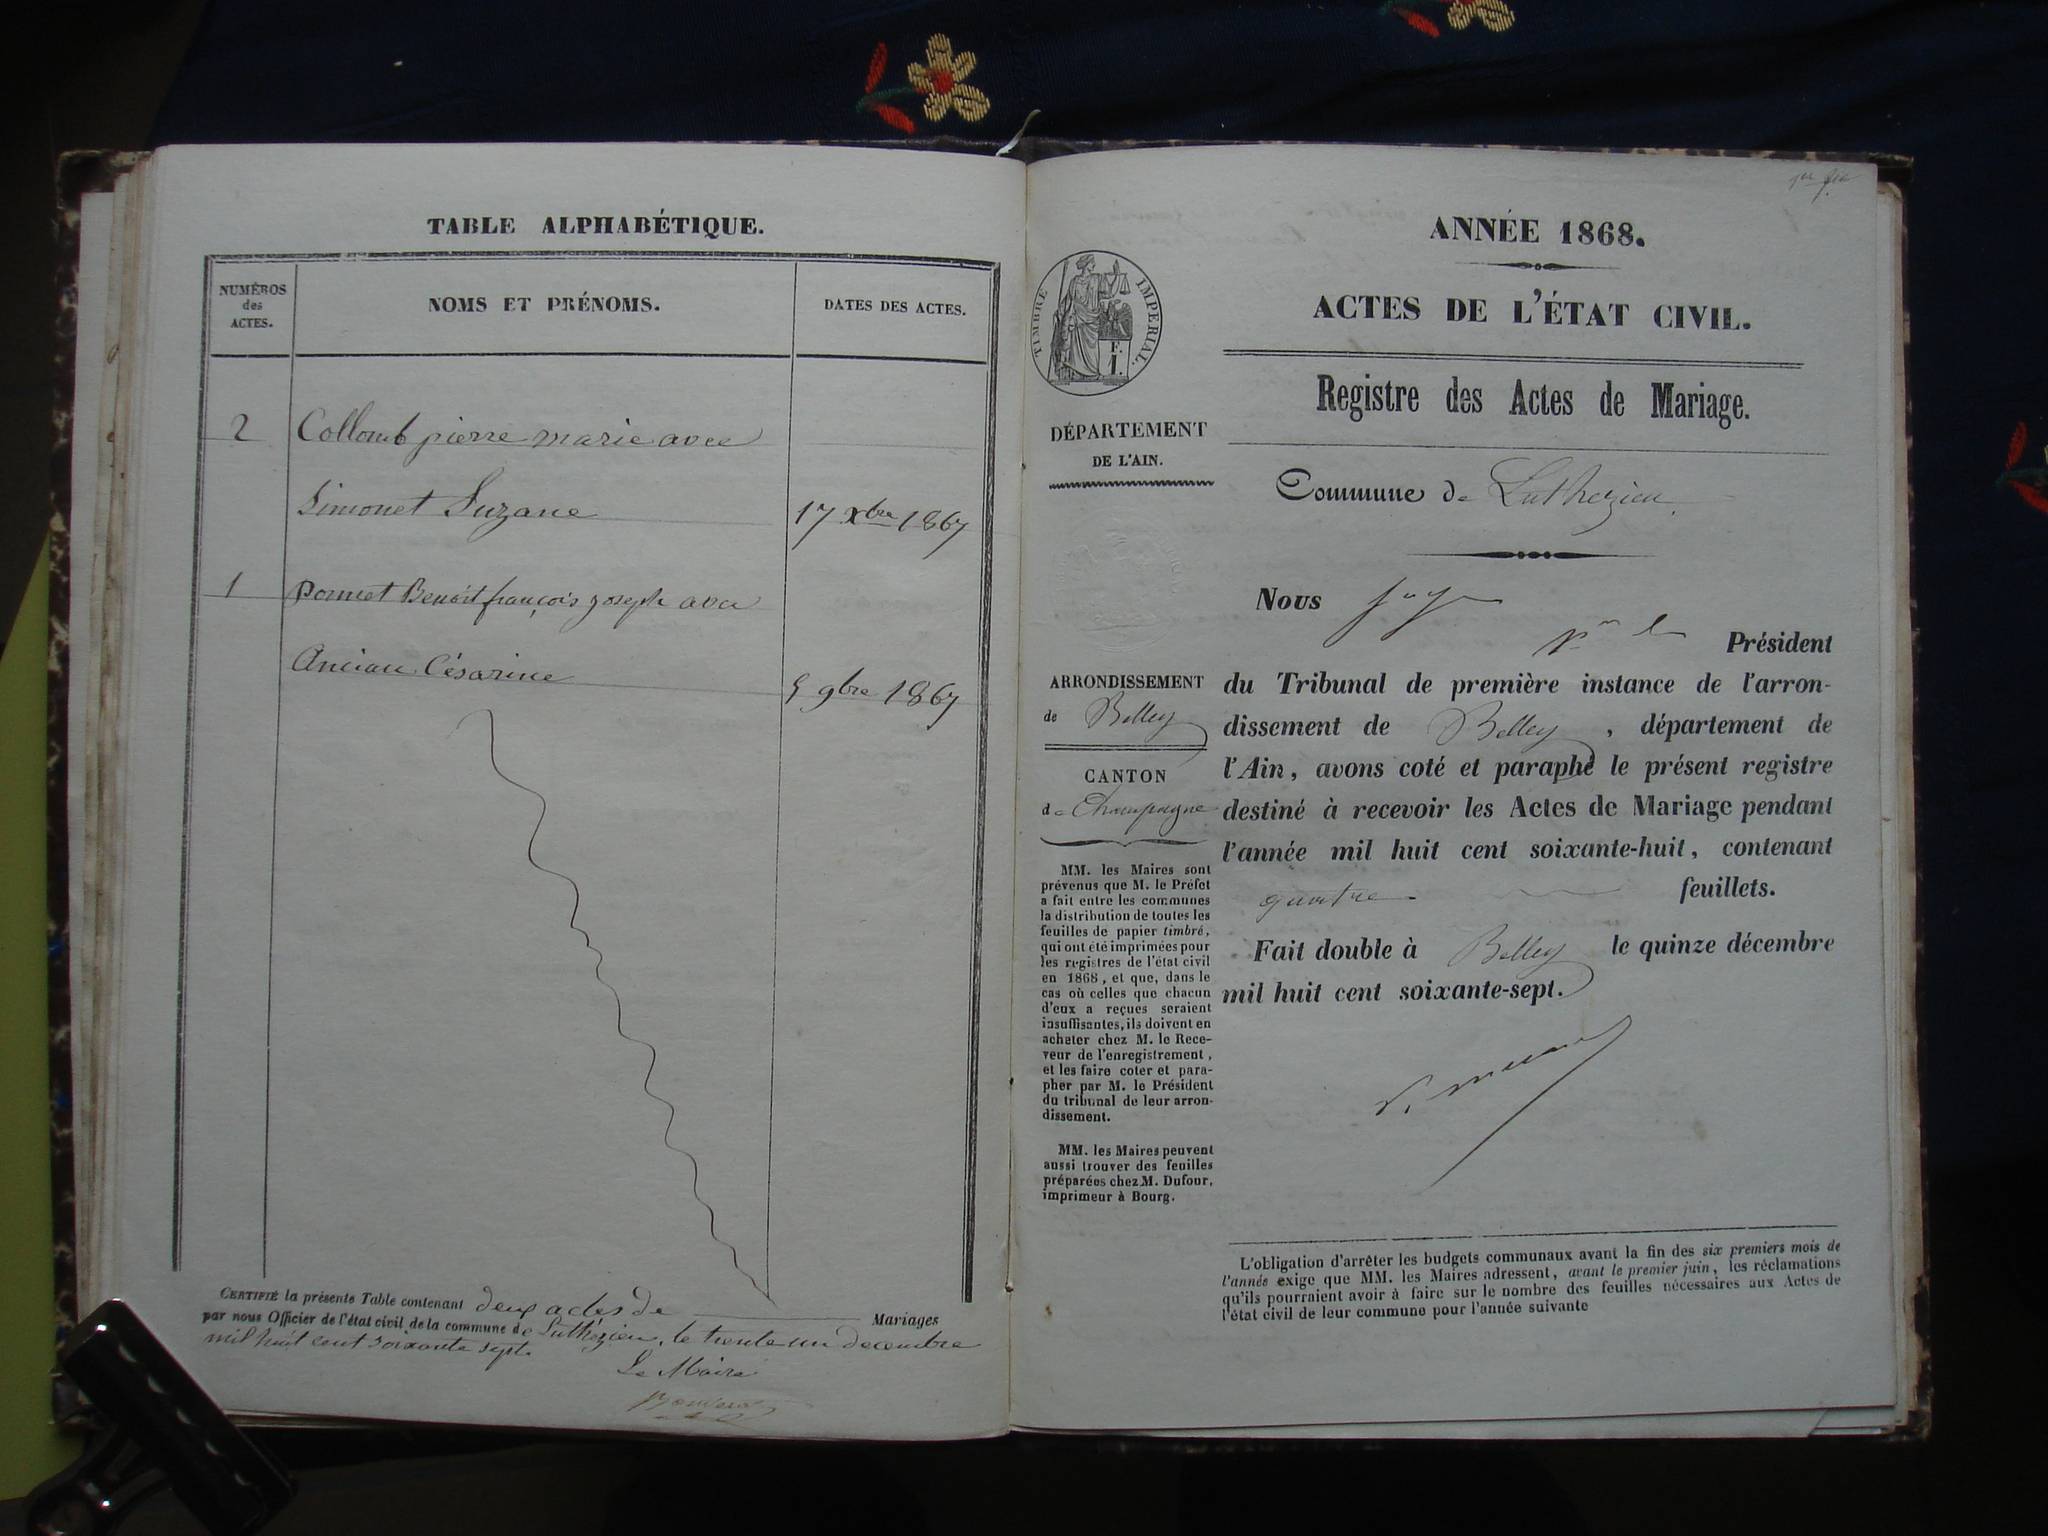 TABLE ALPHABÉTIQUE.
NUMÉROS
des
ACTES.
NOMS ET PRÉNOMS.
DATES DES ACTES.
2 Collomb pierre marie avec
Simonet Suzane 17 Xbre 1867
1 Ponnet Benoit françois joseph avec
Anciau Césarine 5 9bre 1867
CERTIFIÉ la présente Table contenant deux actes de Mariages
par nous Officier de l'état civil de la commune de Luthézieu, le trente un decembre
mil huit cent soixante sept.
Le Maire
ANNÉE 1868.
ACTES DE L'ÉTAT CIVIL.
Registre des Actes de Mariage.
TIMBRE IMPERIAL.
F.
1.
DÉPARTEMENT
DE L'AIN.
Commune de Luthezieu
ARRONDISSEMENT
de Belley
CANTON
de Champagne
MM. les Maires sont
prévenus que M. le Préfet
a fait entre les communes
la distribution de toutes les
feuilles de papier timbré,
qui ont été imprimées pour
les registres de l'état civil
en 1868, et que, dans le
cas où celles que chacun
d'eux a reçues seraient
insuffisantes, ils doivent en
acheter chez M. le Rece-
veur de l'enregistrement,
et les faire coter et para-
pher par M. le Président
du tribunal de leur arron-
dissement.
MM. les Maires peuvent
aussi trouver des feuilles
préparées chez M. Dufour,
imprimeur à Bourg.
Nous
Président
du Tribunal de première instance de l'arron-
dissement de Belley, département de
l'Ain, avons coté et paraphé le présent registre
destiné à recevoir les Actes de Mariage pendant
l'année mil huit cent soixante-huit, contenant
quatre feuillets.
Fait double à Belley le quinze décembre
mil huit cent soixante-sept.
L'obligation d'arrêter les budgets communaux avant la fin des six premiers mois de
l'année exige que MM. les Maires adressent, avant le premier juin, les réclamations
qu'ils pourraient avoir à faire sur le nombre des feuilles nécessaires aux Actes de
l'état civil de leur commune pour l'année suivante